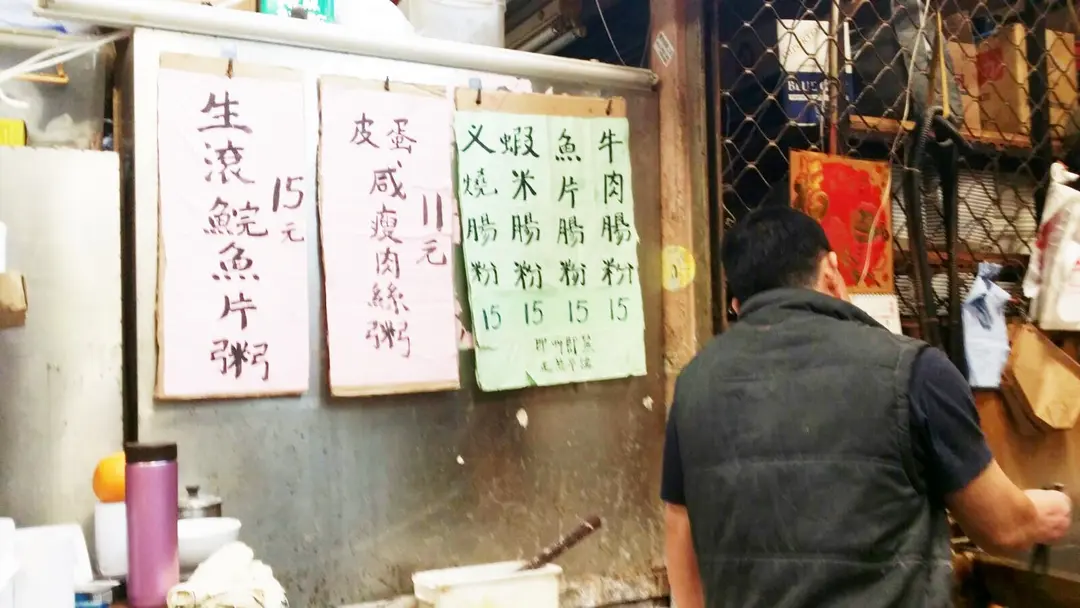 生滾鯇魚片粥
15元
皮蛋咸瘦肉絲粥
11元
义燒腸粉 15
蝦米腸粉 15
魚片腸粉 15
牛肉腸粉 15
即叫即蒸
BLUE